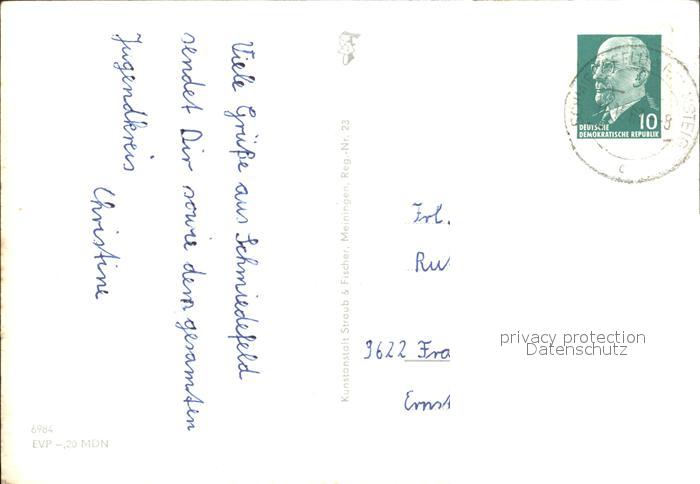 Viele Grüße aus Schmiedefeld
sendet Dir sowie dem gesamten
Jugendkreis Christine
Kunstanstalt Straub & Fischer, Meiningen, Reg.-Nr. 23
10
DEUTSCHE
DEMOKRATISCHE REPUBLIK
c
Frl.
Ru
privacy protection
Datenschutz
3622 Fra
Ernst
6984
EVP -,20 MDN